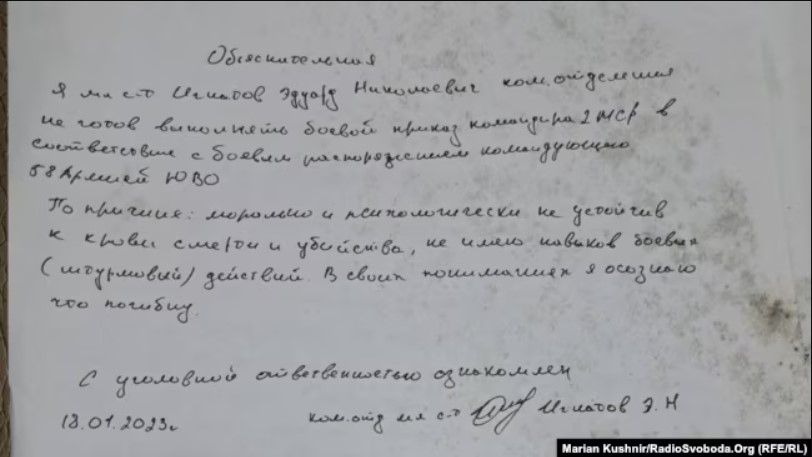 Объяснительная
Я мл с-т Игнатов Эдуард Николаевич ком. отделения
не готов выполнять боевой приказ командира 2 МСР в
соответсвие с боевым распоряжением командующего
58 Армией ЮВО
По причине: морально и психологически не устойчив
к крови смерти и убийства, не имею навыков боевых
(штурмовый) действий. В своих пониманиях я осознаю
что погибну.
С уголовной ответственостью ознакомлен
18.01.2023г ком. отд мл с-т Игнатов Э. Н
Marian Kushnir/RadioSvoboda.Org (RFE/RL)